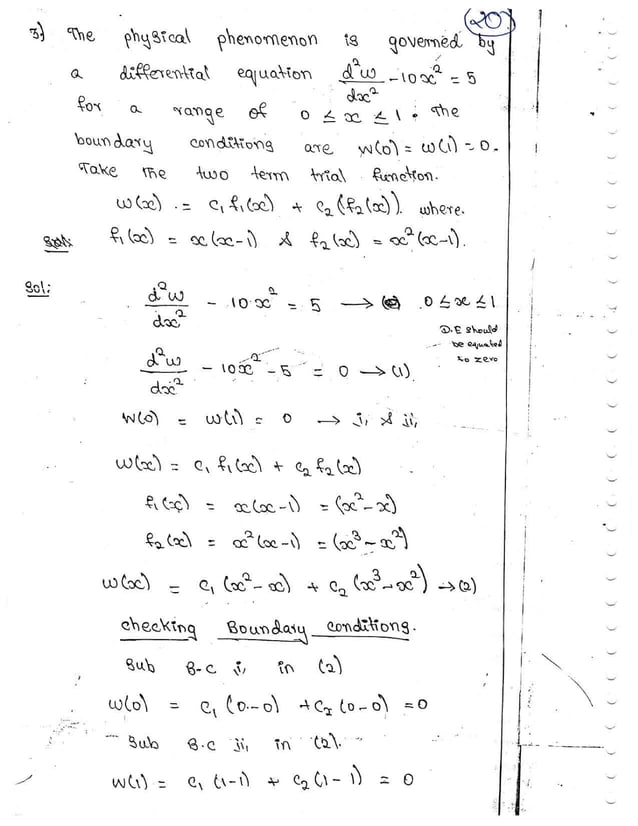 20
3) The physical phenomenon is governed by
a differential equation d²w/dx² - 10x² = 5
for a range of 0 ≤ x ≤ 1. The
boundary conditions are w(0) = w(1) = 0.
Take the two term trial function.
w(x) = c₁ f₁(x) + c₂ (f₂(x)). where.
f₁(x) = x(x-1) & f₂(x) = x²(x-1).
Sol:
d²w/dx² - 10x² = 5 → 0 ≤ x ≤ 1
D.E should
be equated
to zero
d²w/dx² - 10x² - 5 = 0 → (1).
w(0) = w(1) = 0 → i, & ii,
w(x) = c₁ f₁(x) + c₂ f₂(x)
f₁(x) = x(x-1) = (x²-x)
f₂(x) = x²(x-1) = (x³-x²)
w(x) = c₁ (x²-x) + c₂ (x³-x²) → (2)
checking Boundary conditions.
Sub B-C i, in (2)
w(0) = c₁ (0-0) + c₂ (0-0) = 0
Sub B.C ii, in (2).
w(1) = c₁ (1-1) + c₂ (1-1) = 0